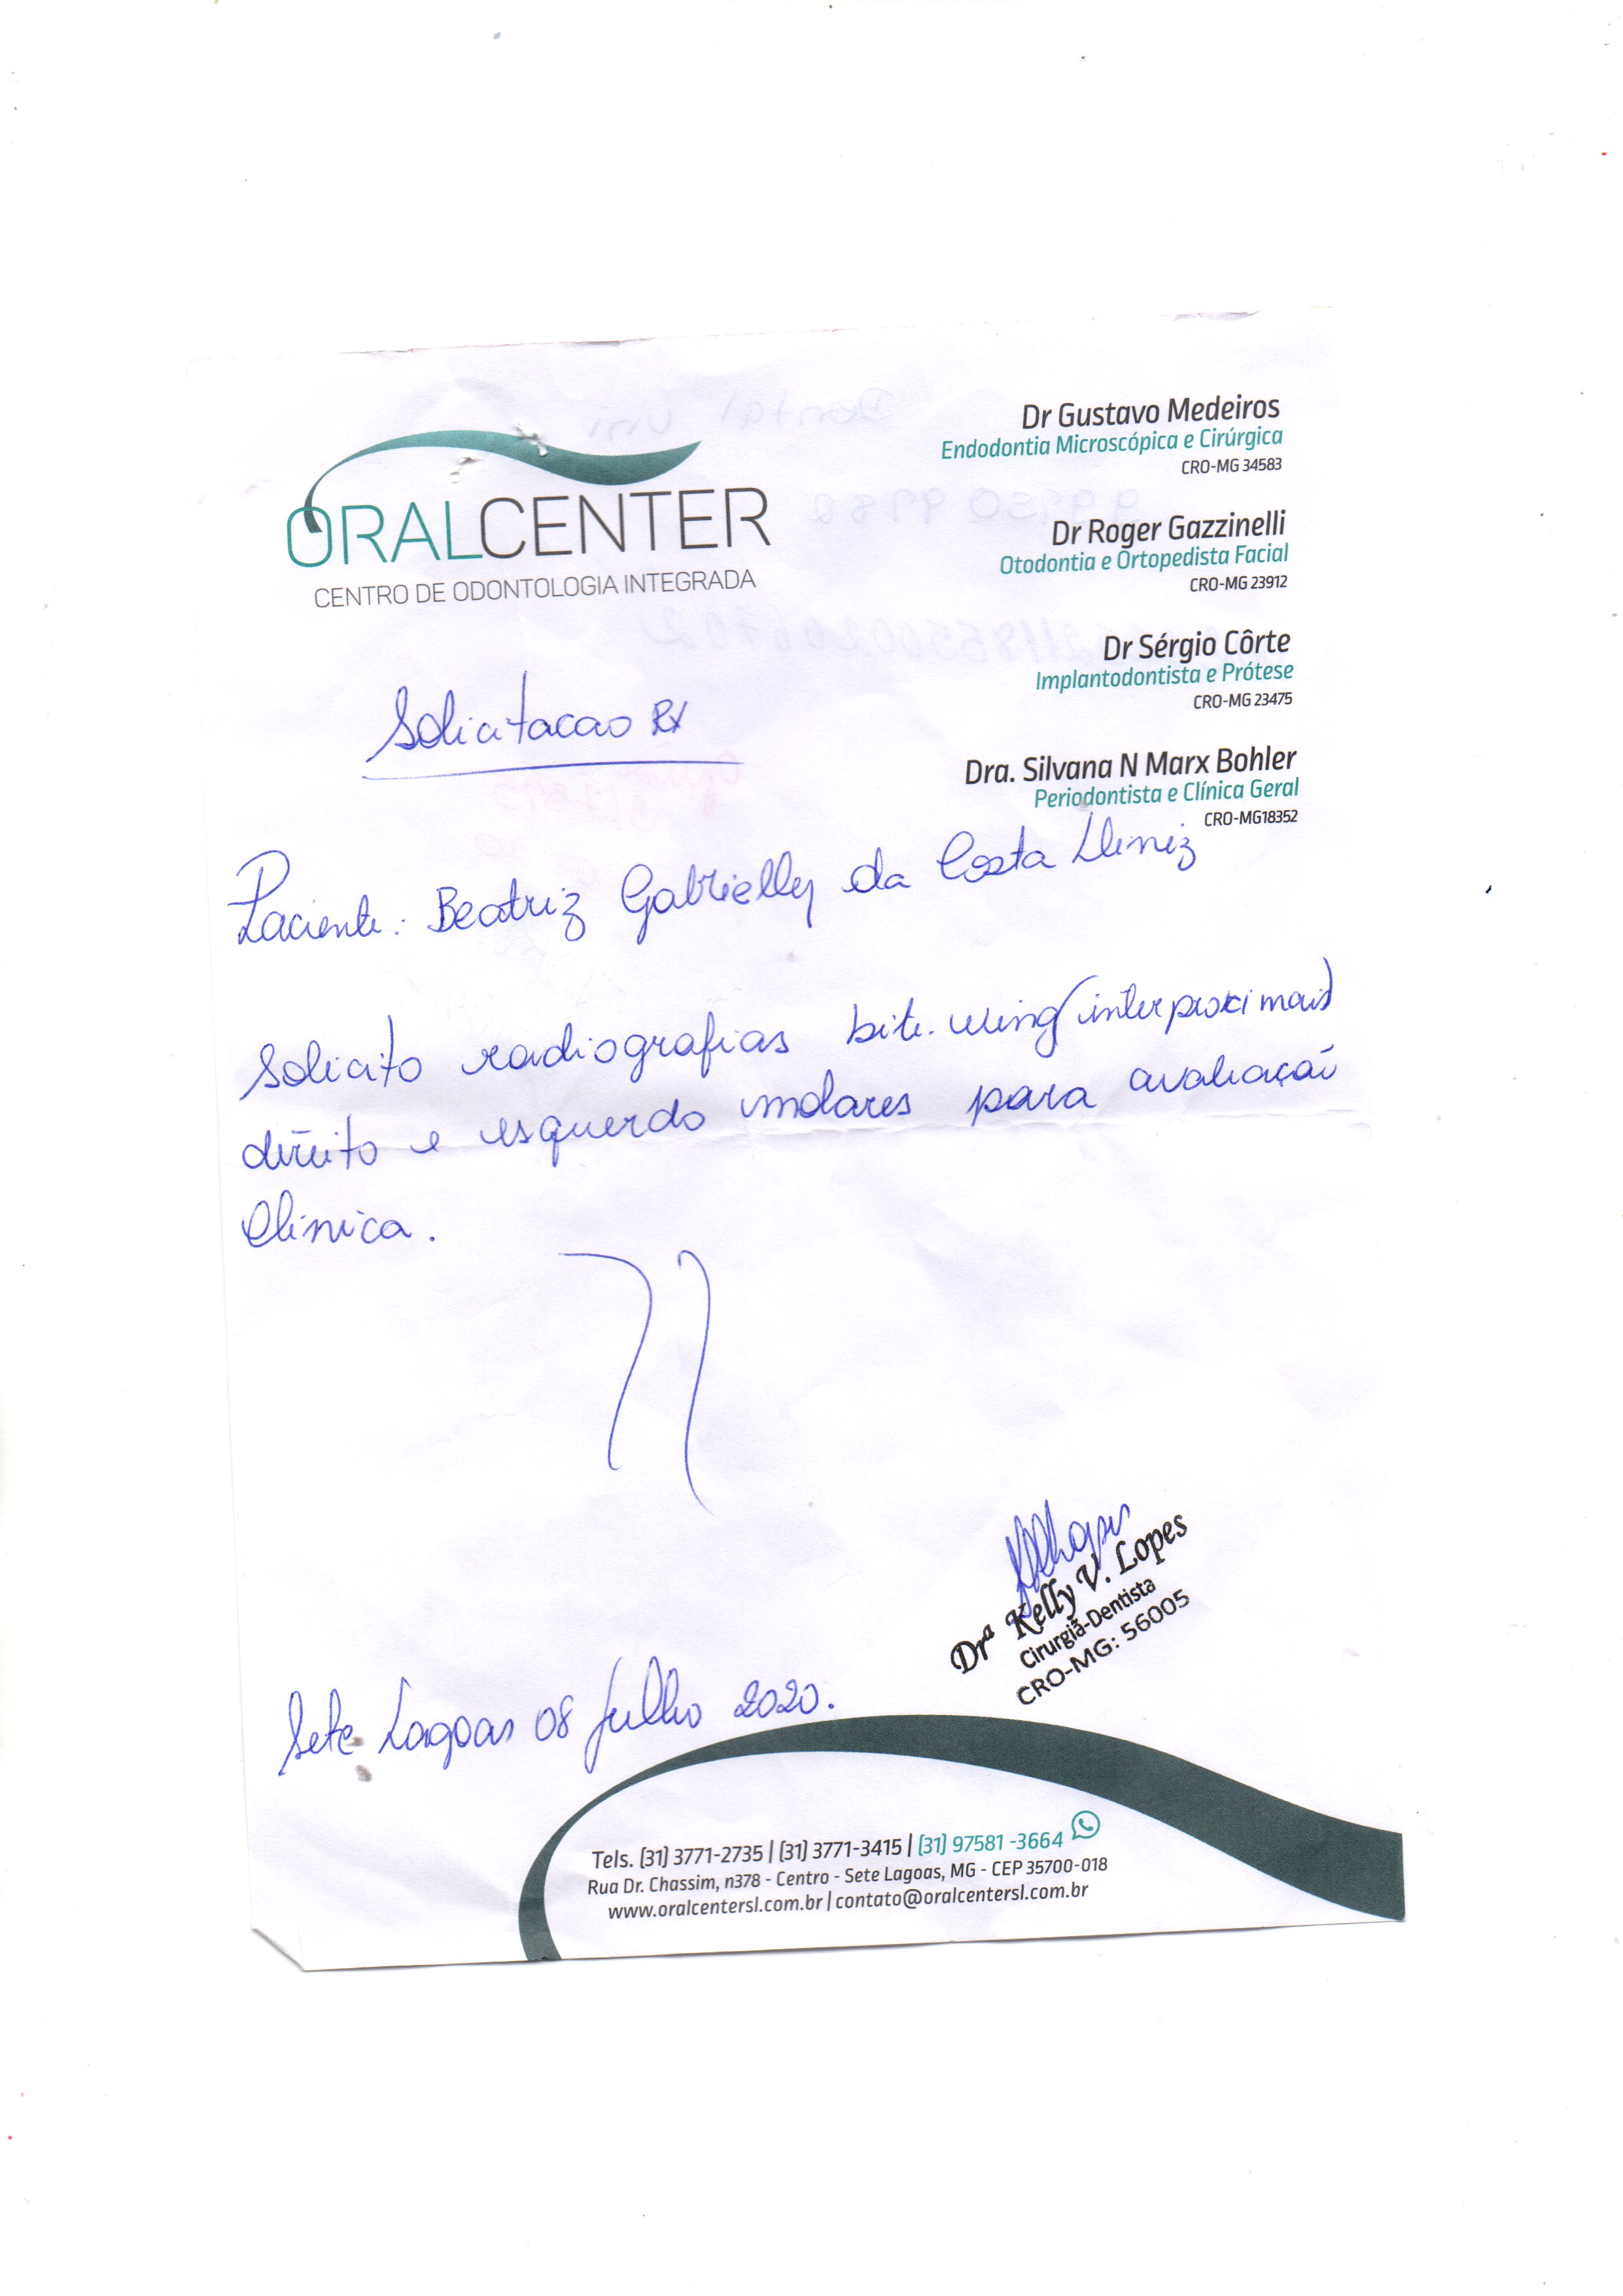 ORALCENTER
CENTRO DE ODONTOLOGIA INTEGRADA
Dr Gustavo Medeiros
Endodontia Microscópica e Cirúrgica
CRO-MG 34583
Dr Roger Gazzinelli
Otodontia e Ortopedista Facial
CRO-MG 23912
Dr Sérgio Côrte
Implantodontista e Prótese
CRO-MG 23475
Dra. Silvana N Marx Bohler
Periodontista e Clínica Geral
CRO-MG18352
Solicitacao RX
Paciente: Beatriz Gabrielly da Costa
Solicito radiografias bite-wing (interproximais)
direito e esquerdo molares para avaliação
Clinica.
Drª Kelly V. Lopes
Cirurgiã-Dentista
CRO-MG: 56005
Sete Lagoas 08 Julho 2020.
Tels. (31) 3771-2735 | (31) 3771-3415 | (31) 97581 -3664
Rua Dr. Chassim, n378 - Centro - Sete Lagoas, MG - CEP 35700-018
www.oralcentersl.com.br | contato@oralcentersl.com.br